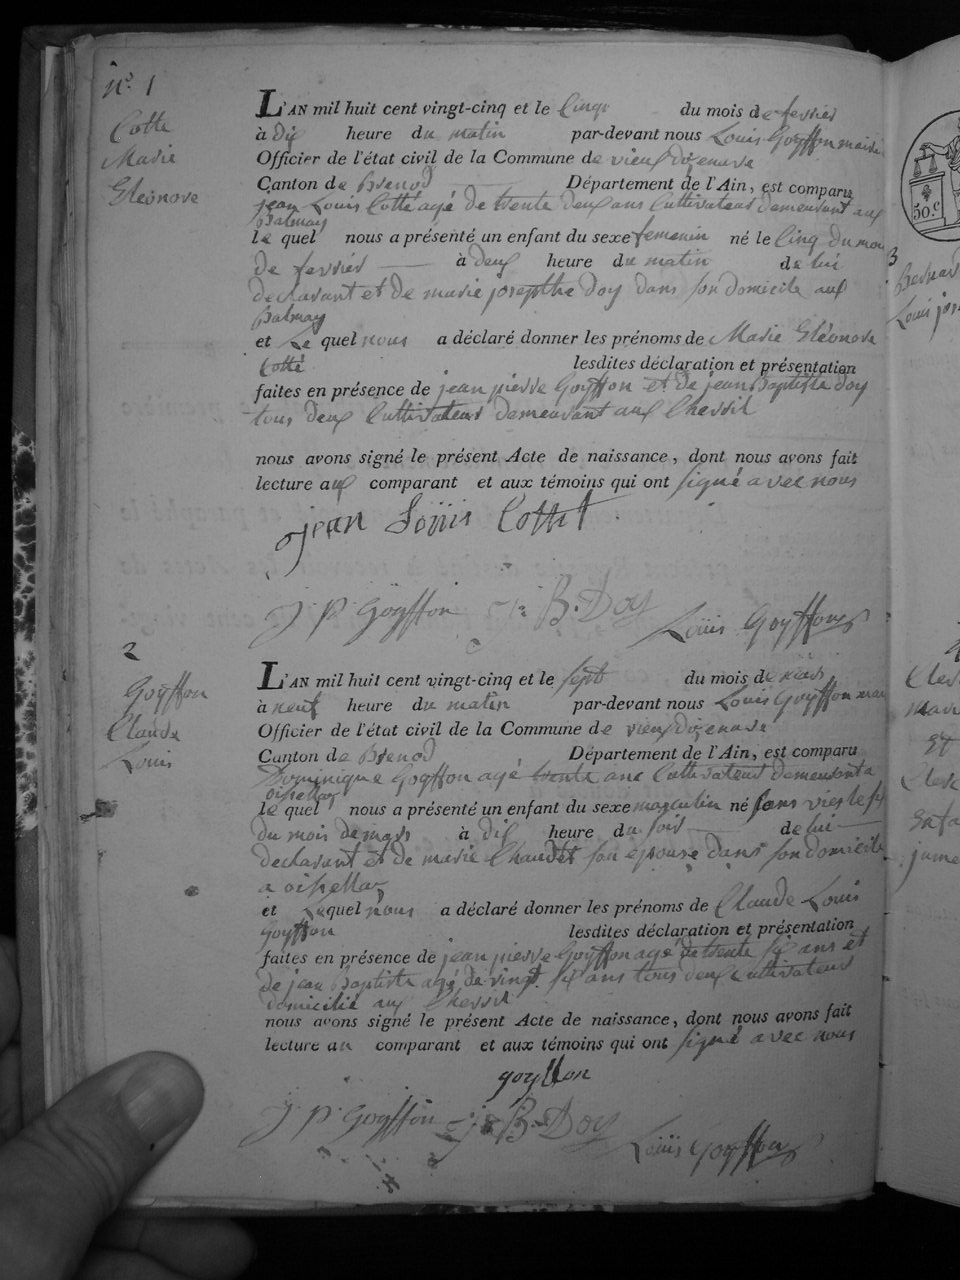 n° 1
Cotte
Marie
Eléonore
L'AN mil huit cent vingt-cinq et le Cinq du mois de fevrier
à dix heure du matin par-devant nous Louis Goyffon maire
Officier de l'état civil de la Commune de vieux dizenave
Canton de Brenod Département de l'Ain, est comparu
jean Louis Cotte agé de trente deux ans Cultivateur demeurant aux
Balmay
le quel nous a présenté un enfant du sexe femenin né le Cinq du moi
de fevrier à deux heure du matin de lui
declarant et de marie josepthe doy dans son domicile aux
Balmay
et Le quel nous a déclaré donner les prénoms de Marie Eléonore
Cotte lesdites déclaration et présentation
faites en présence de jean pierre Goyffon et de jean Baptiste doy
tous deux Cultivateurs demeurant aux Chevril
nous avons signé le présent Acte de naissance, dont nous avons fait
lecture aux comparant et aux témoins qui ont signé avec nous
jean Loüis Cottet
J P Goÿffon J B. Doy Loüis Goyffon
2
Goyffon
Claude
Louis
L'AN mil huit cent vingt-cinq et le sept du mois de mars
à neuf heure du matin par-devant nous Louis Goyffon mair
Officier de l'état civil de la Commune de vieux dizenave
Canton de Brenod Département de l'Ain, est comparu
Dominique Goyffon agé trente ane Cultivateur demeurant a
oisellaz
le quel nous a présenté un enfant du sexe masculin né sans vies le six
du mois de mars à dix heure du soir de lui
declarant et de marie Chaudet son epouse dans son domicile
a oisellaz
et Lequel nous a déclaré donner les prénoms de Claude Louis
Goyffon lesdites déclaration et présentation
faites en présence de jean pierre Goyffon agé de trente six ans et
de jean Baptiste agé de vingt six ans tous deux Cultivateurs
domicilié aux Chevril
nous avons signé le présent Acte de naissance, dont nous avons fait
lecture au comparant et aux témoins qui ont signé avec nous
goyffon
J P Goyffon J B. Doy Loüis Goyffon
50.c
3
Bernar
Louis jos